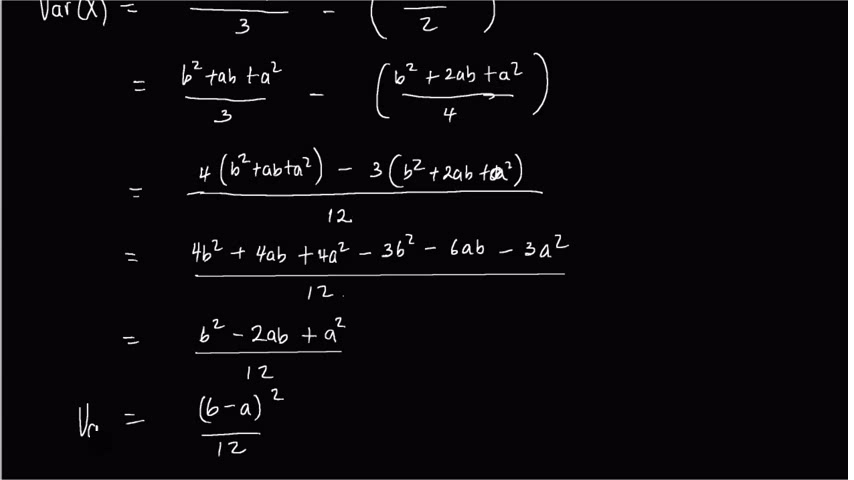 Var(X) = / 3 - ( / 2 )
= b² + ab + a² / 3 - ( b² + 2ab + a² / 4 )
= 4(b² + ab + a²) - 3(b² + 2ab + a²) / 12
= 4b² + 4ab + 4a² - 3b² - 6ab - 3a² / 12.
= b² - 2ab + a² / 12
= (b - a)² / 12